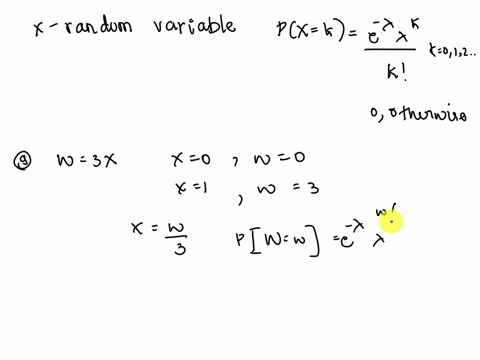 x - random variable P(X=k) = e^{-λ} λ^k / k! k=0,1,2..
0, otherwise
a) W = 3X x=0 , w=0
x=1 , w = 3
x = w/3 P[W=w] = e^{-λ} λ^{w/